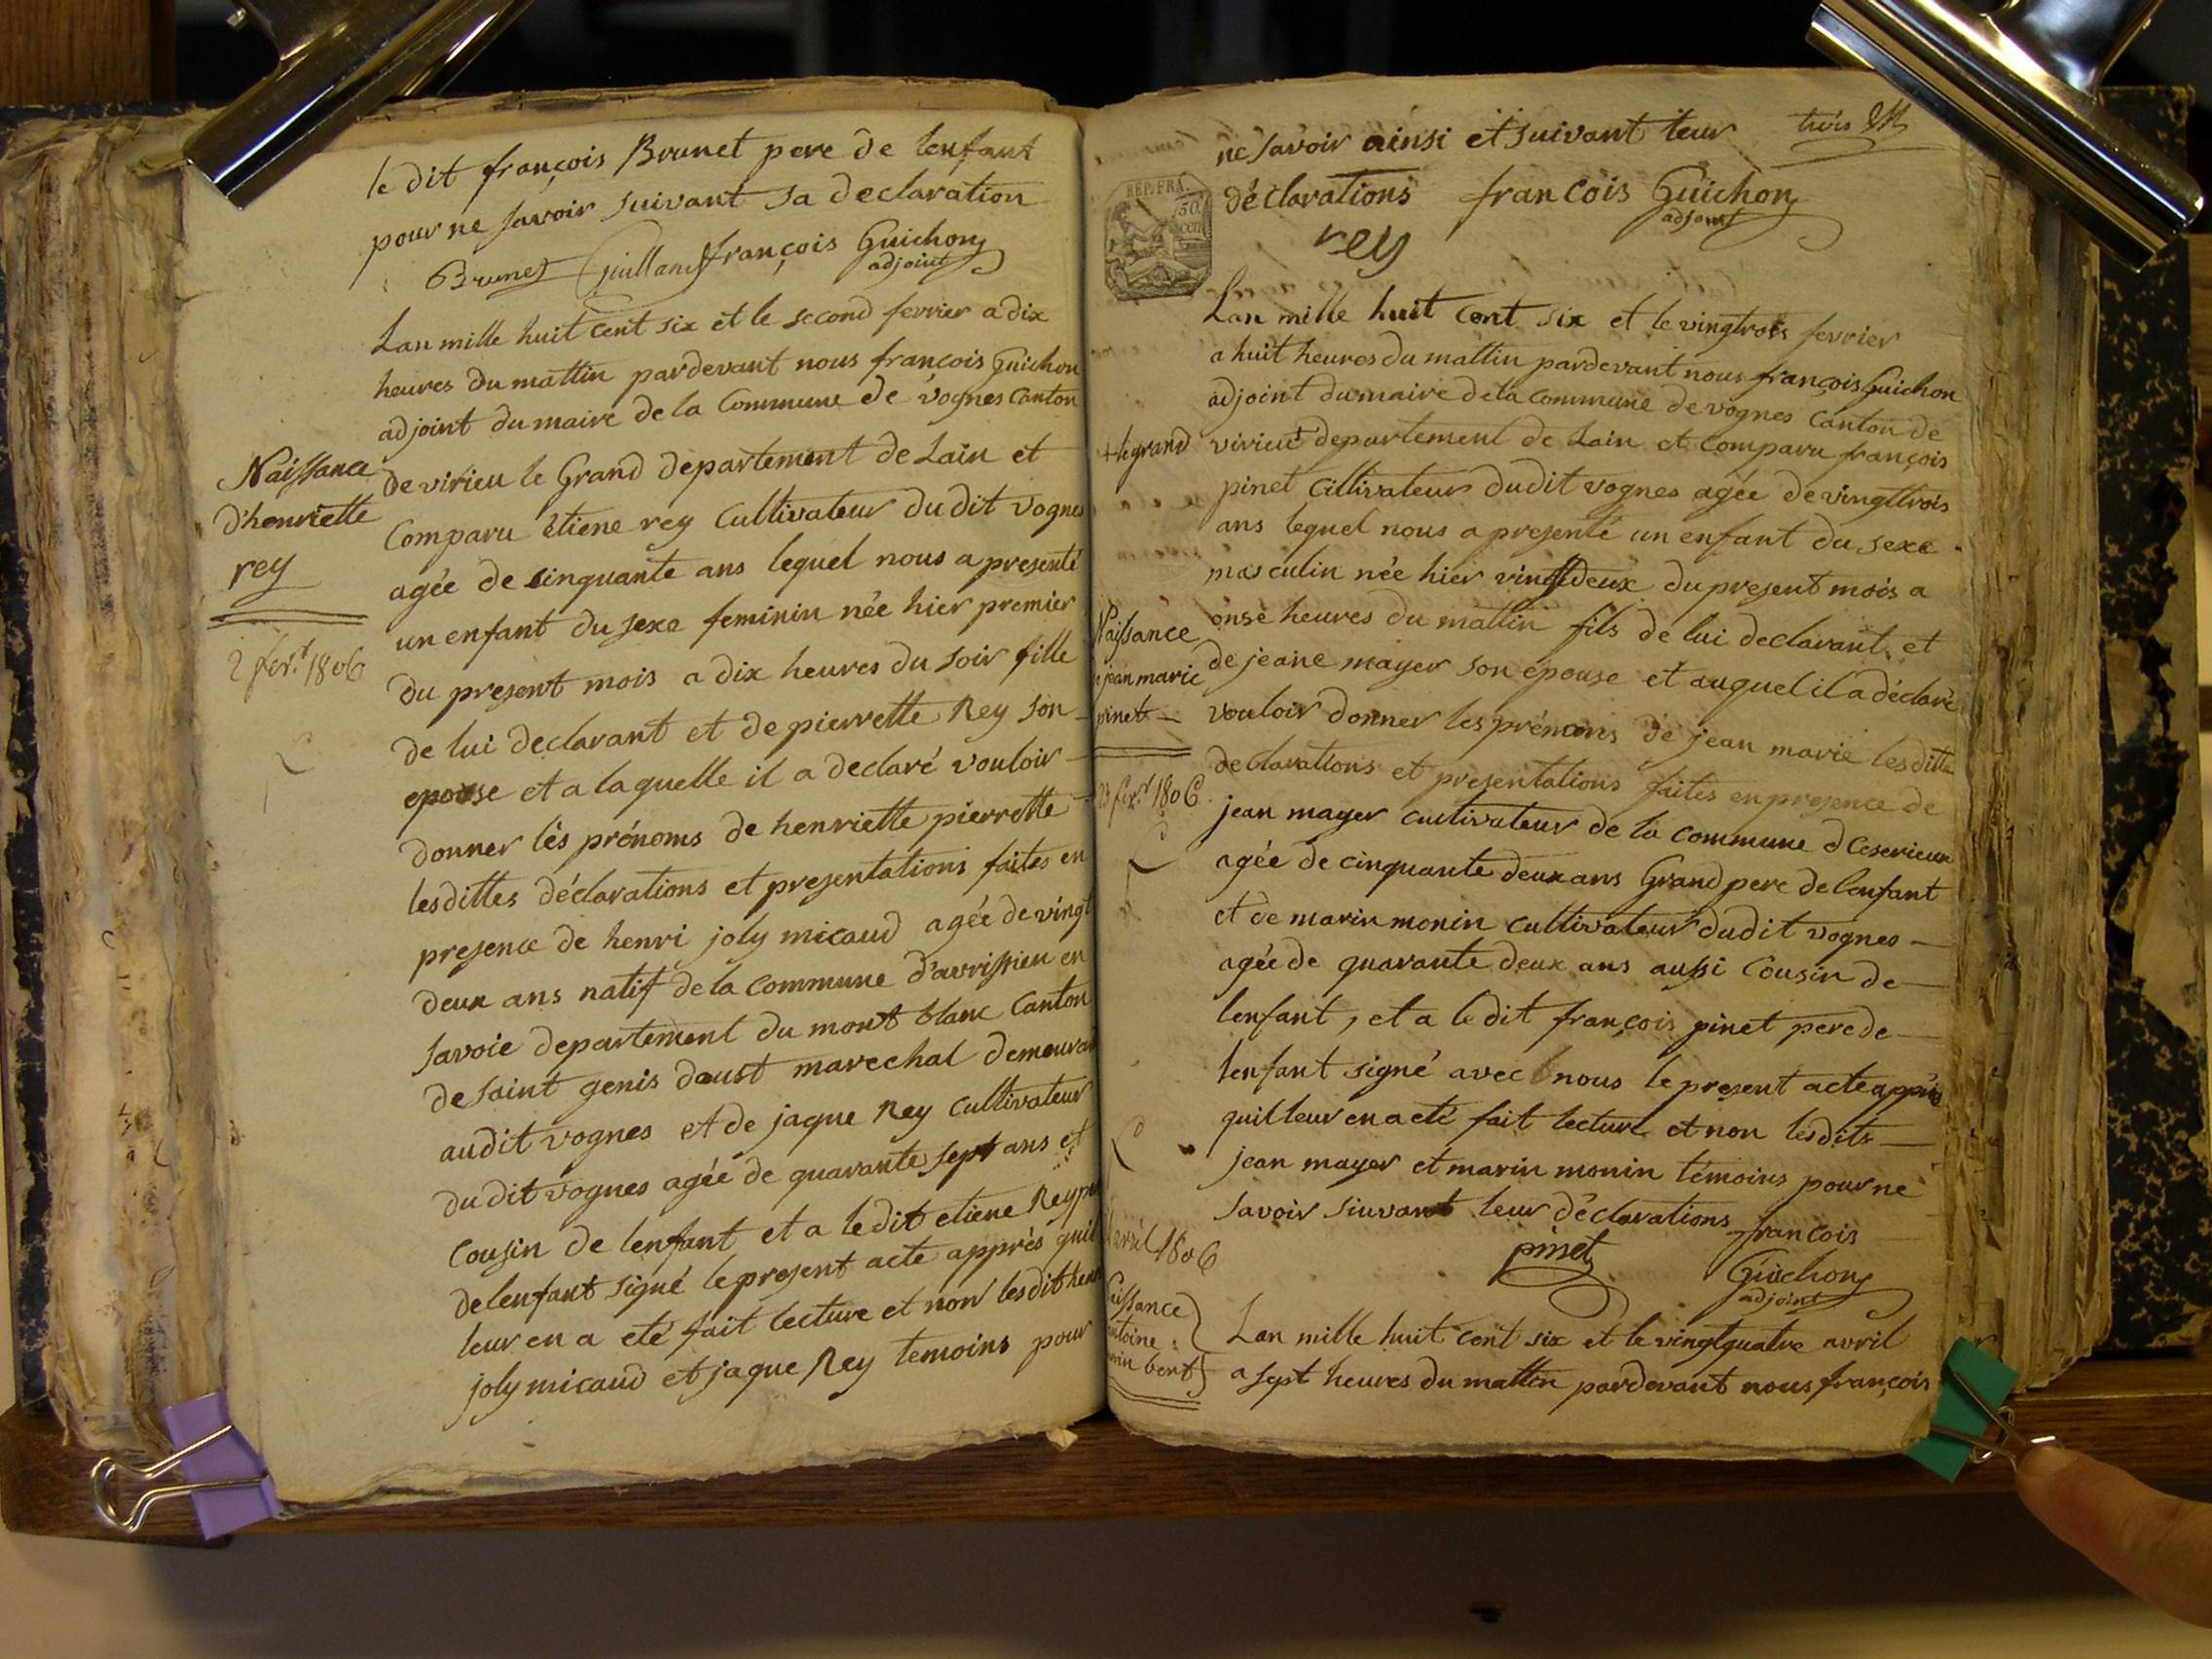 le dit françois Brunet pere de lenfant
pour ne savoir suivant sa declaration
Brunet françois Guichon
adjoint
Lan mille huit cent six et le second fevrier a dix
heures du mattin pardevant nous françois Guichon
adjoint du maire de la Commune de vognes Canton
Naissance
d'henriette
rey
2 fevr. 1806
de virieu le Grand departement de Lain et
Comparu Etiene rey Cultivateur dudit vognes
agée de sinquante ans lequel nous a presenté
un enfant du sexe feminin née hier premier
du present mois a dix heures du soir fille
de lui declarant et de pierrette Rey son
epouse et a laquelle il a declaré vouloir
donner les prénoms de henriette pierrette
lesdittes déclarations et presentations faites en
presence de henri joly micaud agée de vingt
deux ans natif de la Commune d'avrissieu en
savoie departement du mont blanc Canton
de saint genis daust marechal demeurant
audit vognes et de jaque Rey Cultivateur
dudit vognes agée de quarante sept ans et
Cousin de lenfant et a ledit etiene Rey
delenfant signé le present acte apprès quil
leur en a eté fait lecture et non lesdit
joly micaud et jaque Rey temoins pour
trois
ne savoir ainsi et suivant leur
déclarations francois Guichon
adjoint
rey
REP. FRA.
50
cen
Lan mille huit cent six et le vingtrois fevrier
a huit heures du mattin pardevant nous françois Guichon
adjoint du maire dela commune de vognes Canton de
+legrand
virieu+ departement de Lain et Comparu françois
pinet Cultivateur dudit vognes agée de vingttrois
ans lequel nous a presenté un enfant du sexe
masculin née hier vingtdeux du present mois a
onse heures du mattin fils de lui declarant et
Naissance
jean marie
pinet
23 fevr. 1806
de jeane mayer son epouse et auquel il a déclaré
vouloir donner les prénoms de jean marie lesditte
declarations et presentations faites en presence de
jean mayer cultivateur de la commune d Ceserieux
agée de cinquante deux ans Grand pere de lenfant
et de marin monin cultivateur dudit vognes
agée de quarante deux ans aussi Cousin de
lenfant, et a le dit françois pinet pere de
lenfant signé avec nous le present acte apprès
quil leur en a eté fait lecture et non lesdits
jean mayer et marin monin témoins pour ne
savoir siuvant leur déclarations francois
pinet Guichon
adjoint
avril 1806
Naissance
antoine
Lan mille huit cent six et le vingtquatre avril
a sept heures du mattin pardevant nous françois